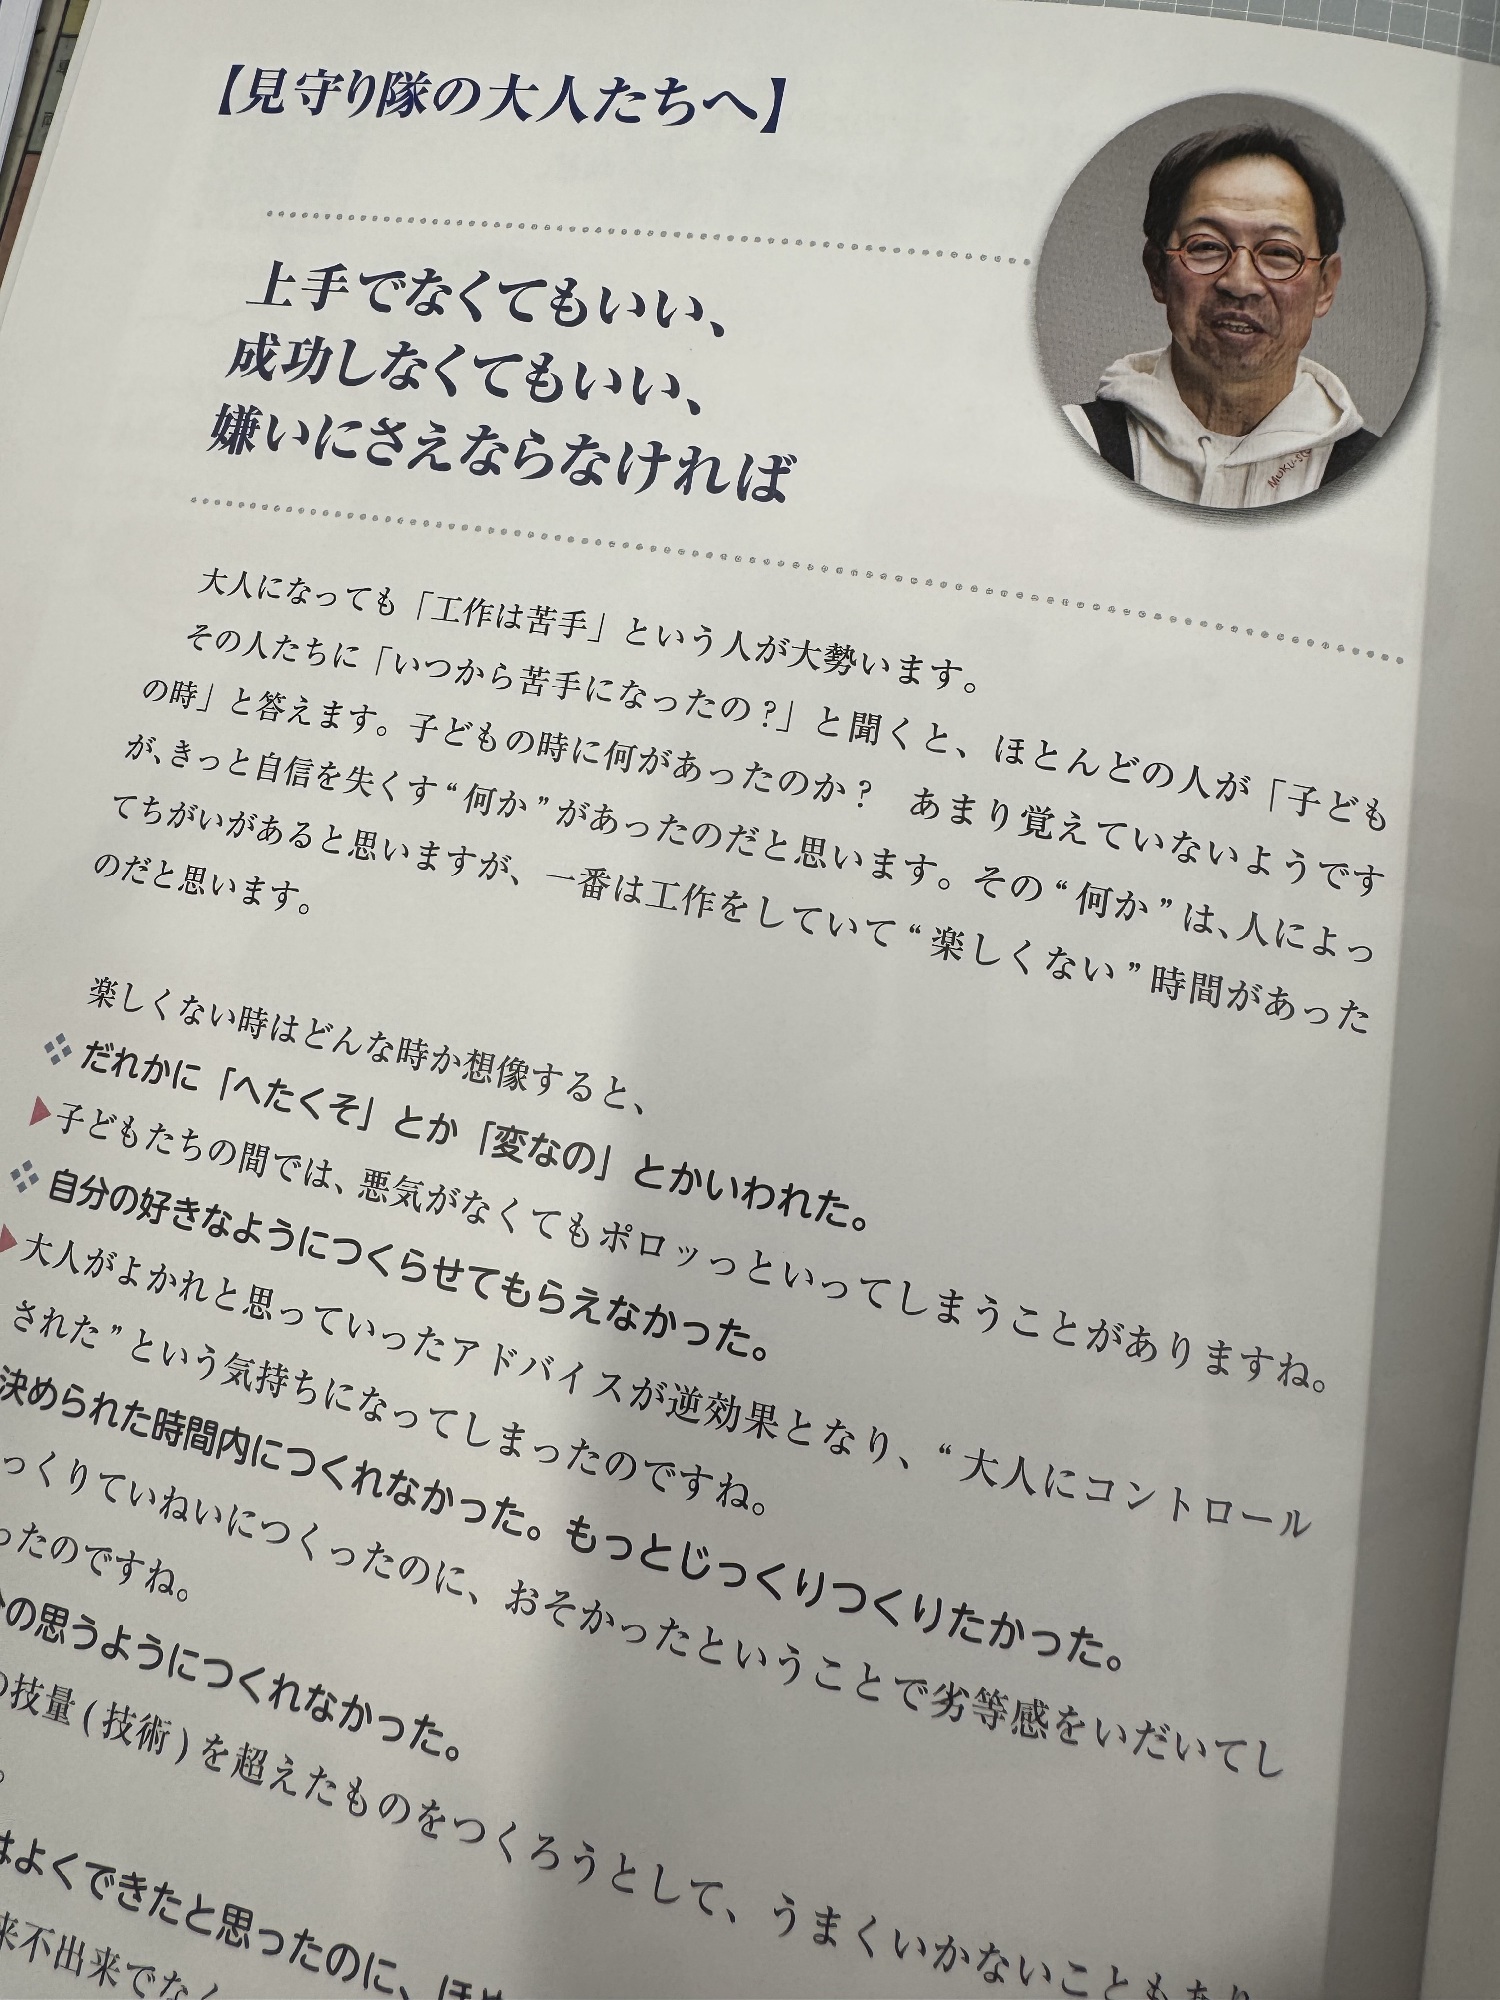 【見守り隊の大人たちへ】
上手でなくてもいい、
成功しなくてもいい、
嫌いにさえならなければ
大人になっても「工作は苦手」という人が大勢います。
その人たちに「いつから苦手になったの？」と聞くと、ほとんどの人が「子ども
の時」と答えます。子どもの時に何があったのか？　あまり覚えていないようです
が、きっと自信を失くす“何か”があったのだと思います。その“何か”は、人によっ
てちがいがあると思いますが、一番は工作をしていて“楽しくない”時間があった
のだと思います。
楽しくない時はどんな時か想像すると、
だれかに「へたくそ」とか「変なの」とかいわれた。
▶子どもたちの間では、悪気がなくてもポロッっといってしまうことがありますね。
自分の好きなようにつくらせてもらえなかった。
▶大人がよかれと思っていったアドバイスが逆効果となり、“大人にコントロール
された”という気持ちになってしまったのですね。
決められた時間内につくれなかった。もっとじっくりつくりたかった。
っくりていねいにつくったのに、おそかったということで劣等感をいだいてし
ったのですね。
の思うようにつくれなかった。
の技量(技術)を超えたものをつくろうとして、うまくいかないこともあり
。
はよくできたと思ったのに、ほめ
来不出来でなく